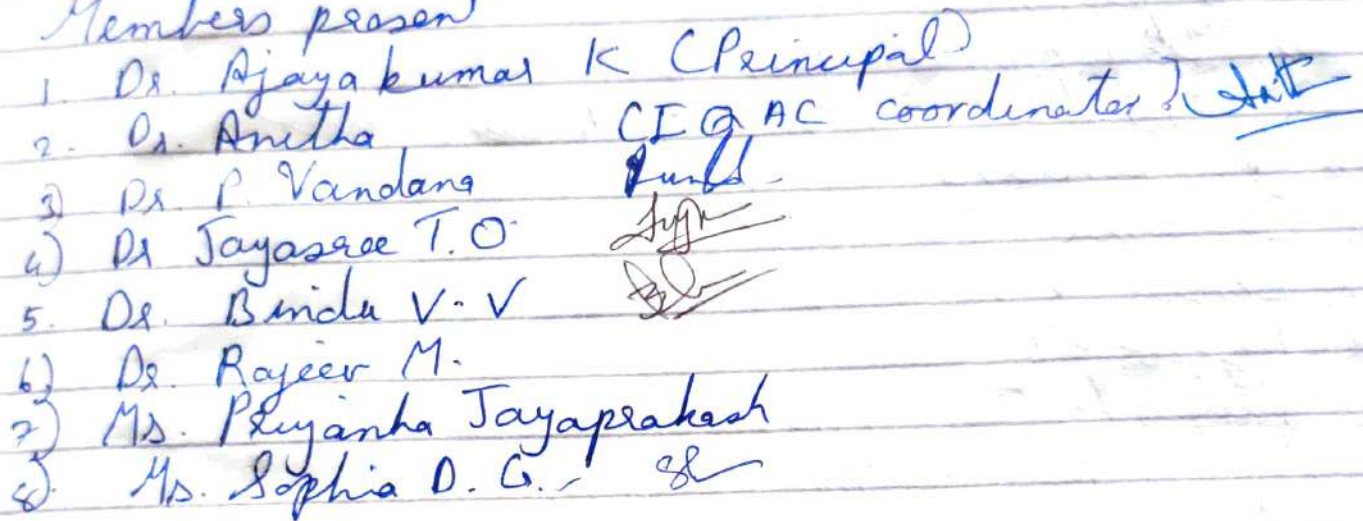 Members presen
1. Dr. Ajayakumar K (Principal)
2. Dr. Anitha (IQAC coordinator)
3) Dr P. Vandana
4) Dr Jayasree T.O.
5. Dr. Bindu V.V
6) Dr. Rajeev M.
7) Ms. Priyanka Jayaprakash
8). Ms. Sophia D. G.